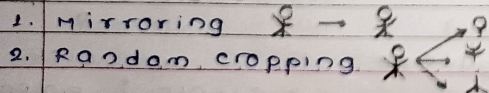 1. Mirroring
2. Random cropping